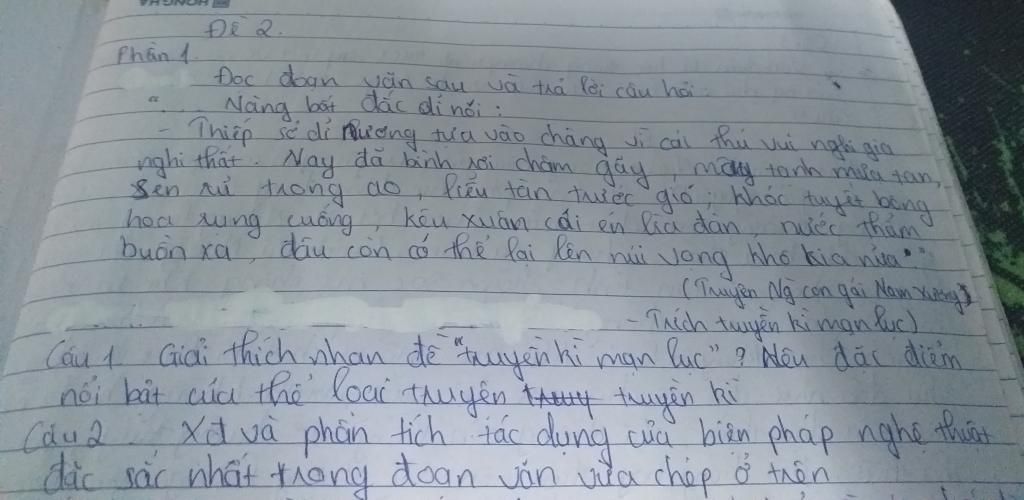 Đề 2.
Phần 1
Đọc đoạn văn sau và trả lời câu hỏi.
" Nàng bất đắc dĩ nói:
- Thiếp sở dĩ nương tựa vào chàng vì cái thú vui nghi gia
nghi thất. Nay đã bình rơi châm gãy, mây tạnh mưa tan,
sen rũ trong ao, liễu tàn trước gió; khóc tuyết bông
hoa rụng cuống, kêu xuân cái én lìa đàn, nước thẳm
buồm xa, đâu còn có thể lại lên núi vọng phu kia nữa."
(Truyện Ng con gái Nam Xương)
- Trích truyền kì mạn lục)
Câu 1 Giải thích nhan đề "truyền kì mạn lục"? Nêu đặc điểm
nổi bật của thể loại truyện truyền kì
Câu 2 Xđ và phân tích tác dụng của biện pháp nghệ thuật
đặc sắc nhất trong đoạn văn vừa chép ở trên